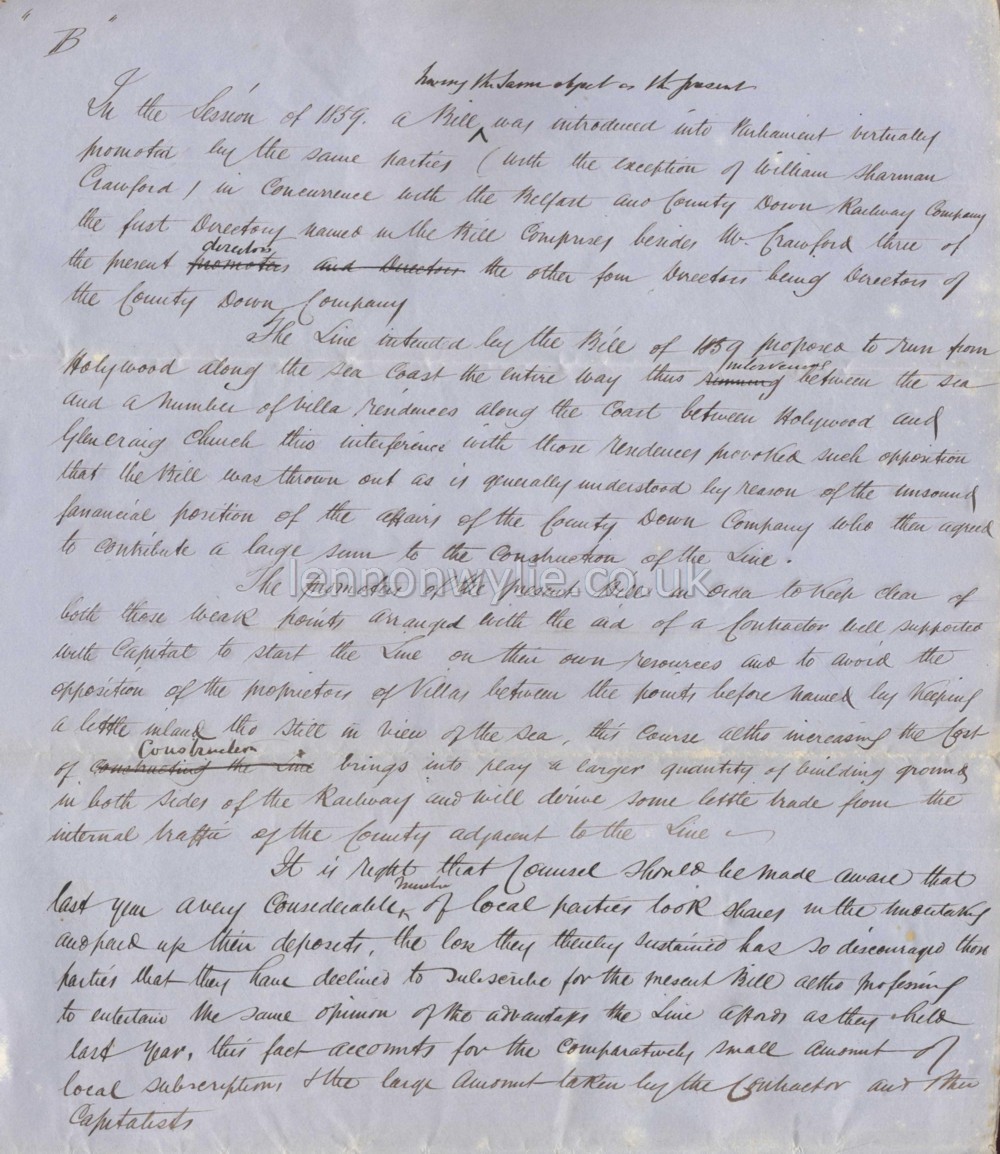 "B"
having the same object as the present
In the Session of 1859. a Bill ^ was introduced into Parliament virtually
promoted by the same parties (with the exception of William Sharman
Crawford) in Concurrence with the Belfast and County Down Railway Company
the first Directory named in the Bill Comprises besides Mr. Crawford three of
directors
the present promoters and Directors the other four Directors being Directors of
the County Down Company
The Line intended by the Bill of 1859 proposed to run from
Holywood along the sea Coast the entire way thus running between the sea
and a number of villa residences along the Coast between Holywood and
Glencraig Church this interference with those residences provoked such opposition
that the Bill was thrown out as is generally understood by reason of the unsound
fanancial position of the affairs of the County Down Company who then agreed
to contribute a large sum to the Construction of the Line.
lennonwylie.co.uk
The promoters of the present Bill in order to keep clear of
both those weak points arranged with the aid of a Contractor well supported
with Capital to start the Line on their own resources and to avoid the
opposition of the proprietors of Villas between the points before named by keeping
a little inland tho still in view of the sea, this course altho increasing the Cost
Construction
of constructing the Line brings into play a larger quantity of building ground
in both sides of the Railway and will derive some little trade from the
internal traffic of the County adjacent to the Line
It is right that Counsel should be made aware that
number
last year a very Considerable ^ of local parties took shares in the undertaking
and paid up their deposits, the loss they thereby sustained has so discouraged those
parties that they have declined to subscribe for the present Bill altho professing
to entertain the same opinion of the advantages the Line affords as they held
last year, this fact accounts for the comparatively small amount of
local subscriptions & the large amount taken by the Contractor and other
Capitalists